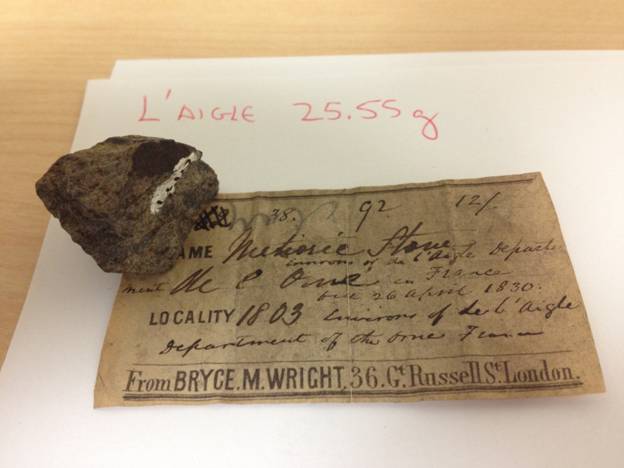 L'AIGLE 25.55g
38. 92 12/.
NAME Meteoric Stone
environs of de l'Aigle Depart
ment de l'Orne in France
26 April 1830.
LOCALITY 1803 Environs of de l'Aigle
Department of the Orne France
From BRYCE. M. WRIGHT, 36. Gt. Russell St. London.